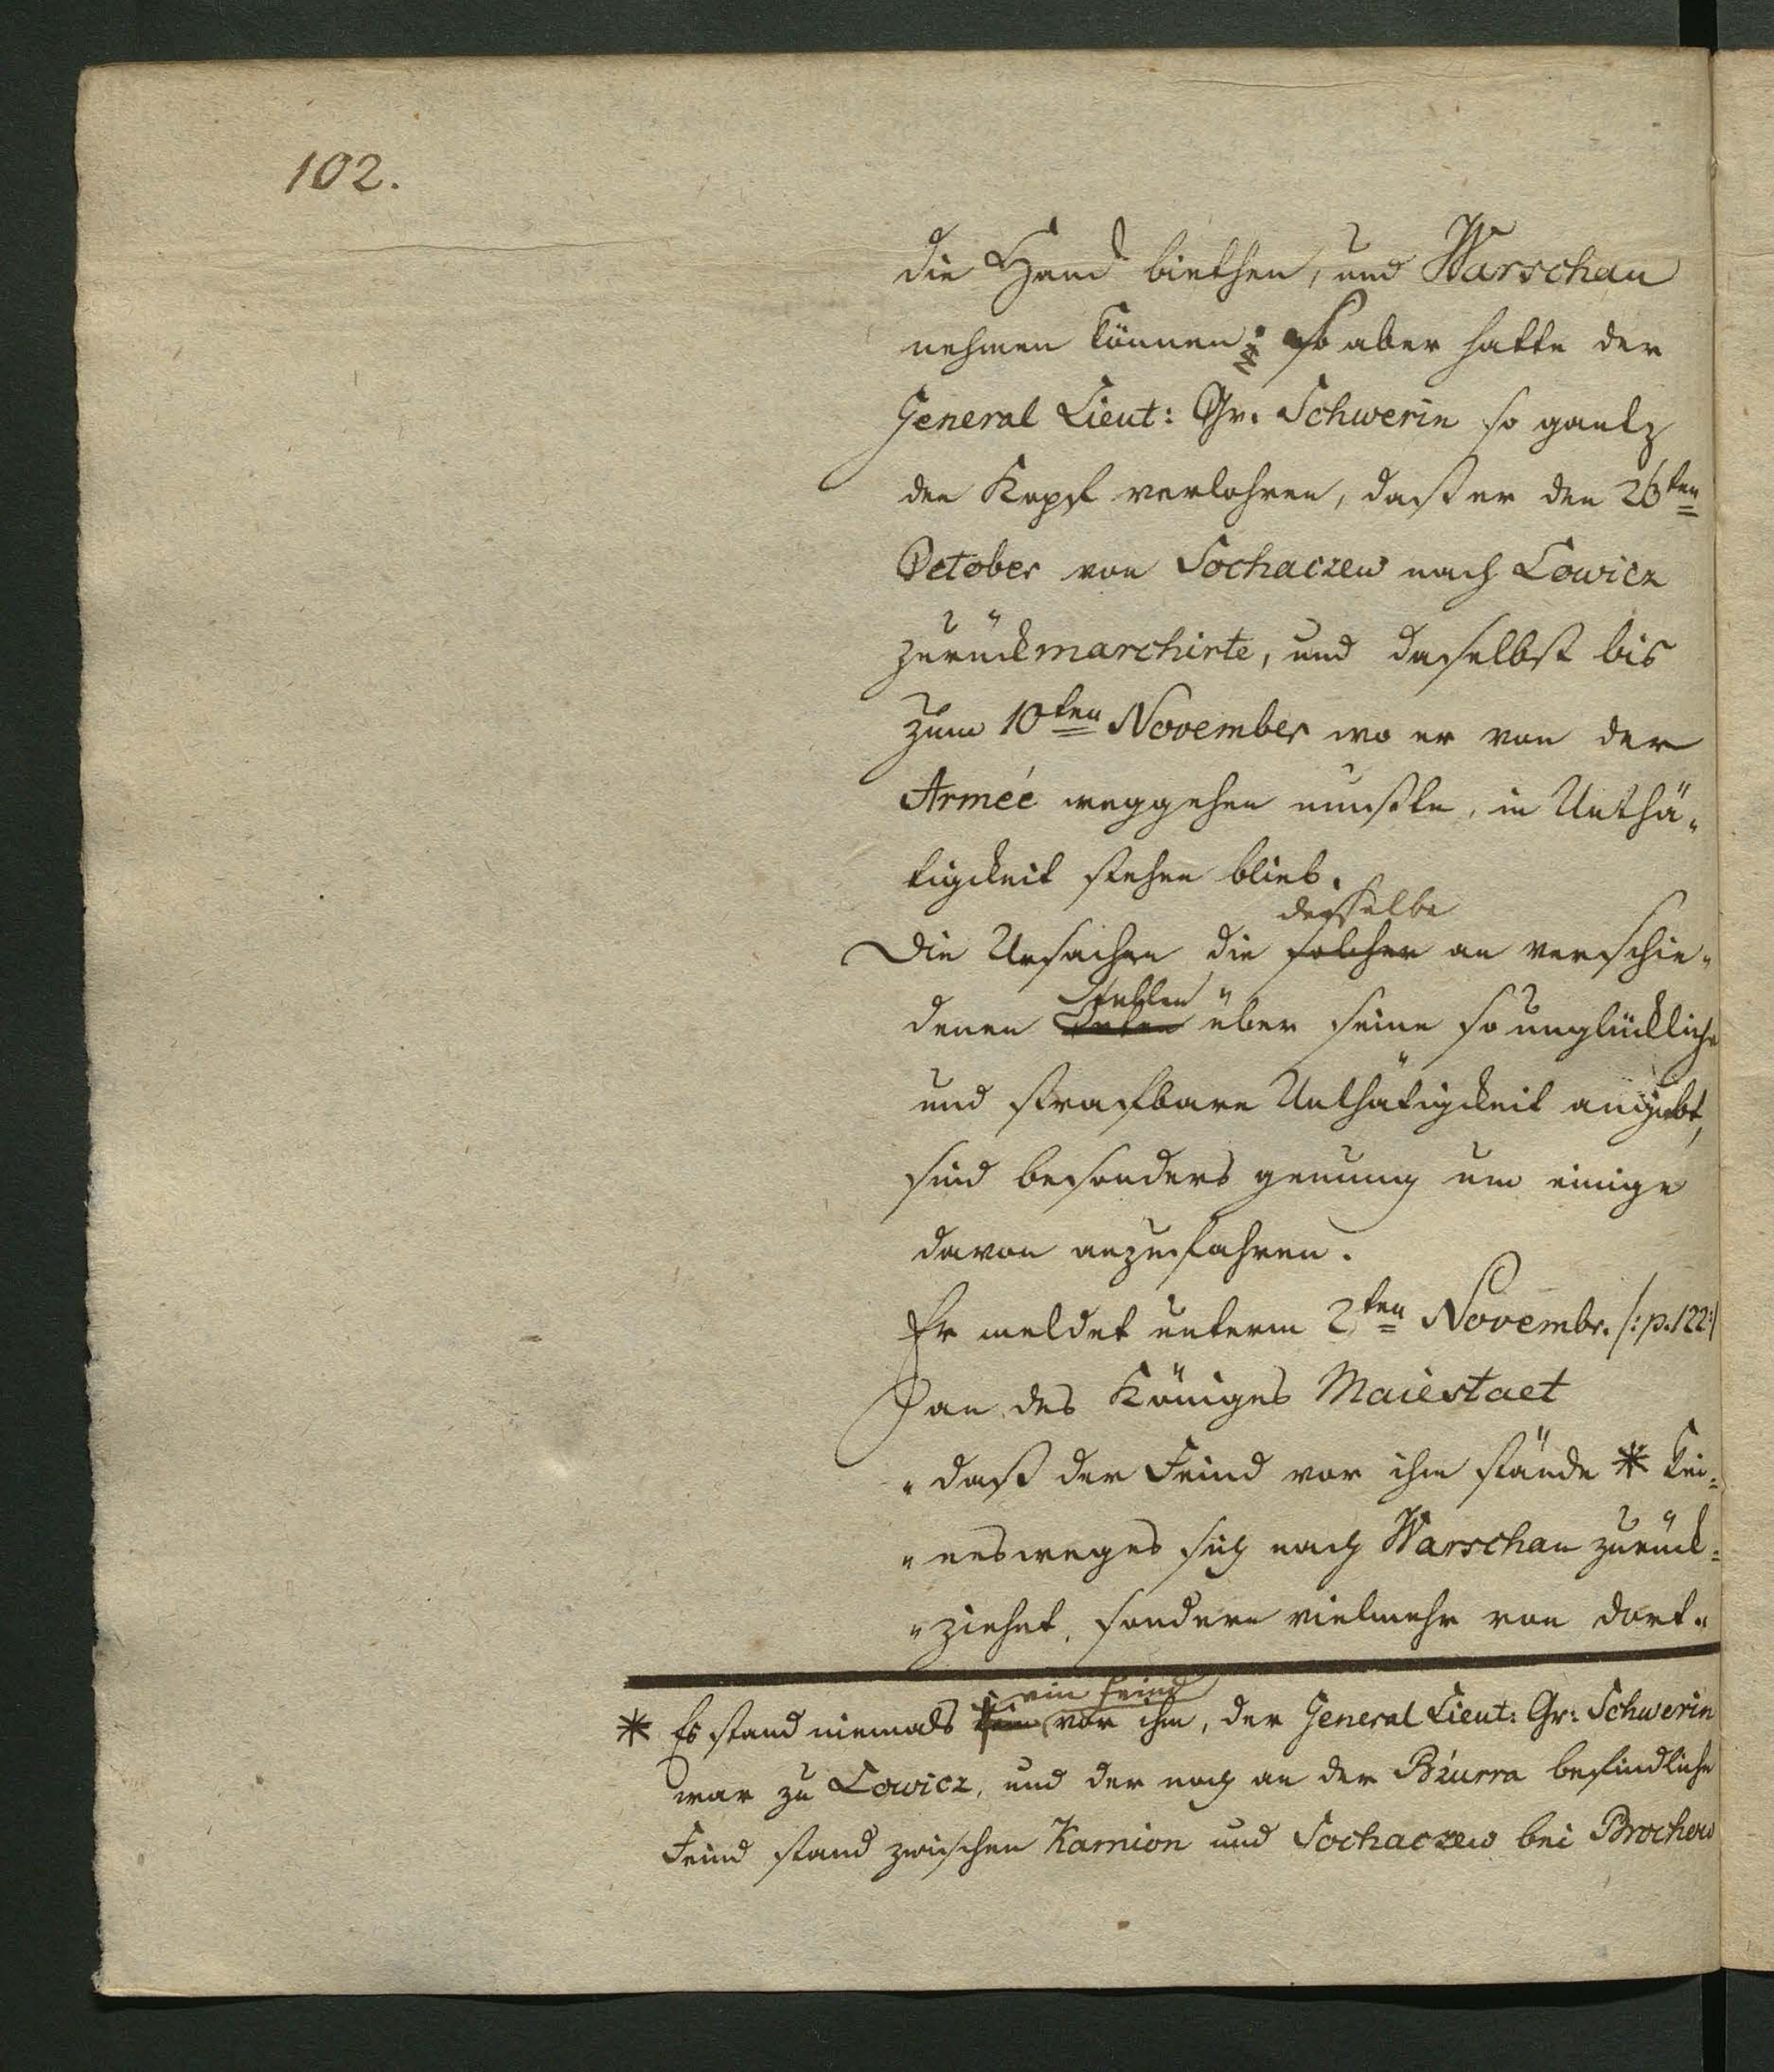 102.
die Hand biethen, und Warschau
nehmen können; so aber hatte der
General Lieut: Gr. Schwerin so gantz
den Kopf verlohren, daß er den 26ten
October von Sochaczew nach Lowicz
zurückmarchirte, und daselbst bis
zum 10ten November wo er von der
Armée weggehen mußte, in Unthä-
tigkeit stehen blieb.
derselbe
Die Ursachen die solcher an verschie-
Stellen
denen Orten über seine so unglückliche
und strafbare Unthätigkeit angiebt,
sind besonders genung um einige
davon anzuführen.
Er meldet unterm 2ten Novembr. /:p.122:/
an des Königes Maiestaet
"daß der Feind vor ihm stände * kei=
"nesweges sich nach Warschau zurück=
"ziehet, sondern vielmehr von dort"
ein Feind
* Es stand niemals vor ihm, der General Lieut: Gr: Schwerin
war zu Lowicz, und der noch an der Bzurra befindliche
Feind stand zwischen Kamion und Sochaczew bei Brochow